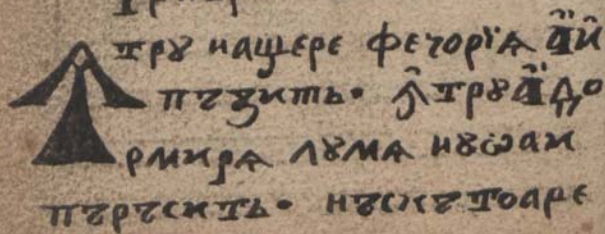 Ꙟтрꙋ нащере фечорїѧ а҆й
пъзить· ꙟ҆трꙋ а҆до
рмирѧ лꙋмѧ нꙋѡаи
пъръсить· нъскътоаре